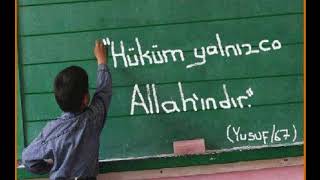 "Hüküm yalnızca
Allah'ındır."
(Yusuf/67)